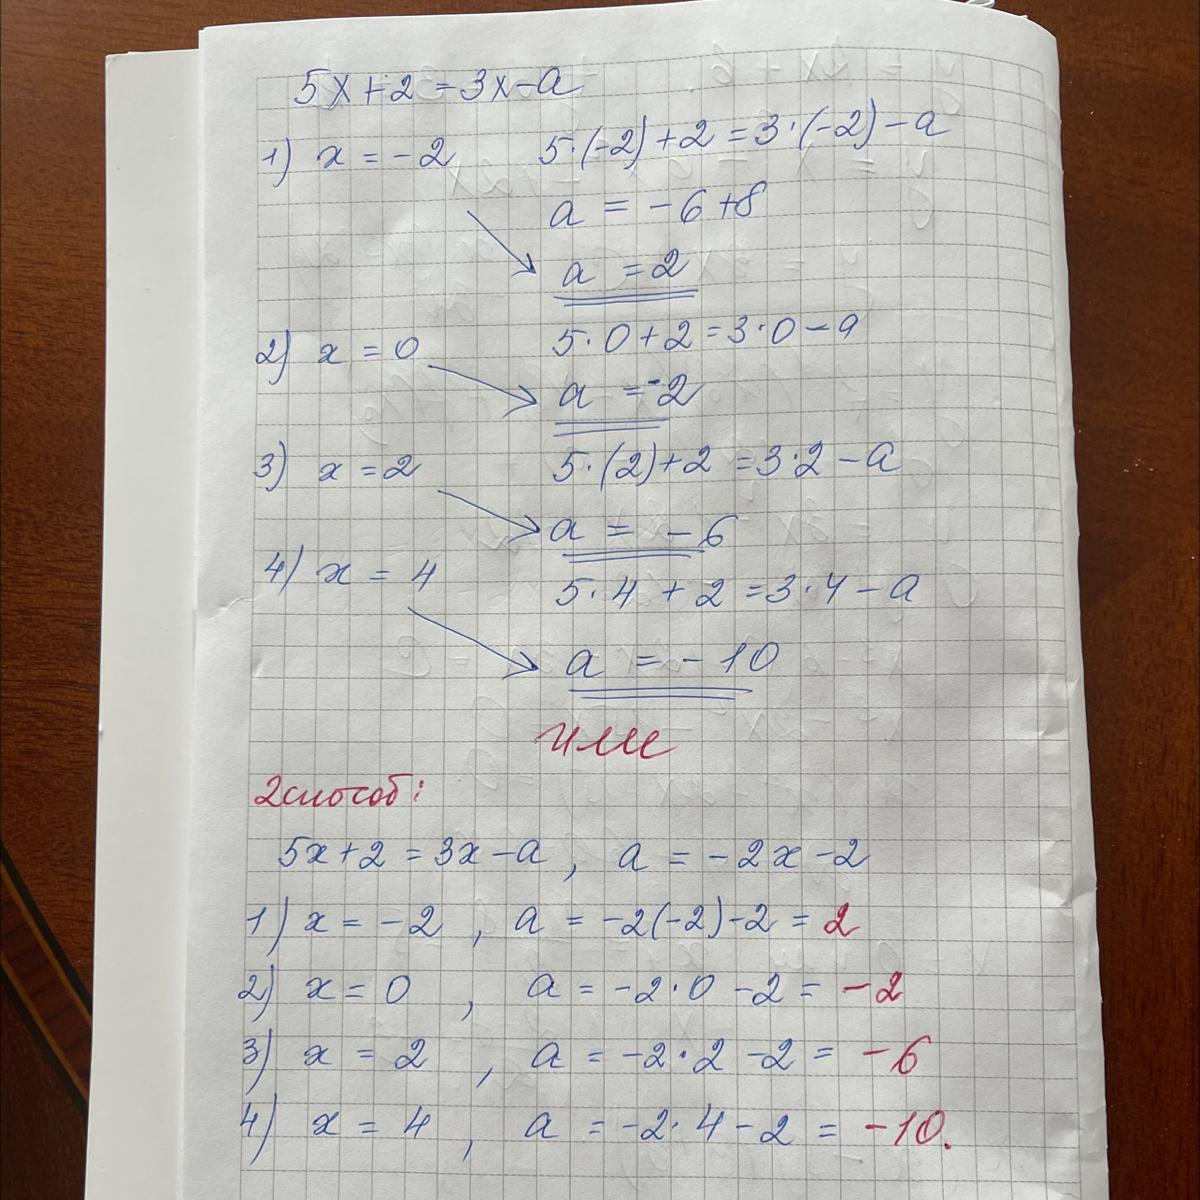 5x+2=3x-a
1) x = -2 5·(-2)+2=3·(-2)-a
a = -6+8
a = 2
2) x = 0 5·0+2=3·0-a
a = -2
3) x = 2 5·(2)+2 =3·2-a
a = -6
4) x = 4 5·4 + 2 =3·4-a
a = -10
или
2способ:
5x+2 = 3x-a , a = -2x-2
1) x = -2 , a = -2(-2)-2 = 2
2) x = 0 , a = -2·0 -2 = -2
3) x = 2 , a = -2·2 -2 = -6
4) x = 4 , a = -2·4-2 = -10.